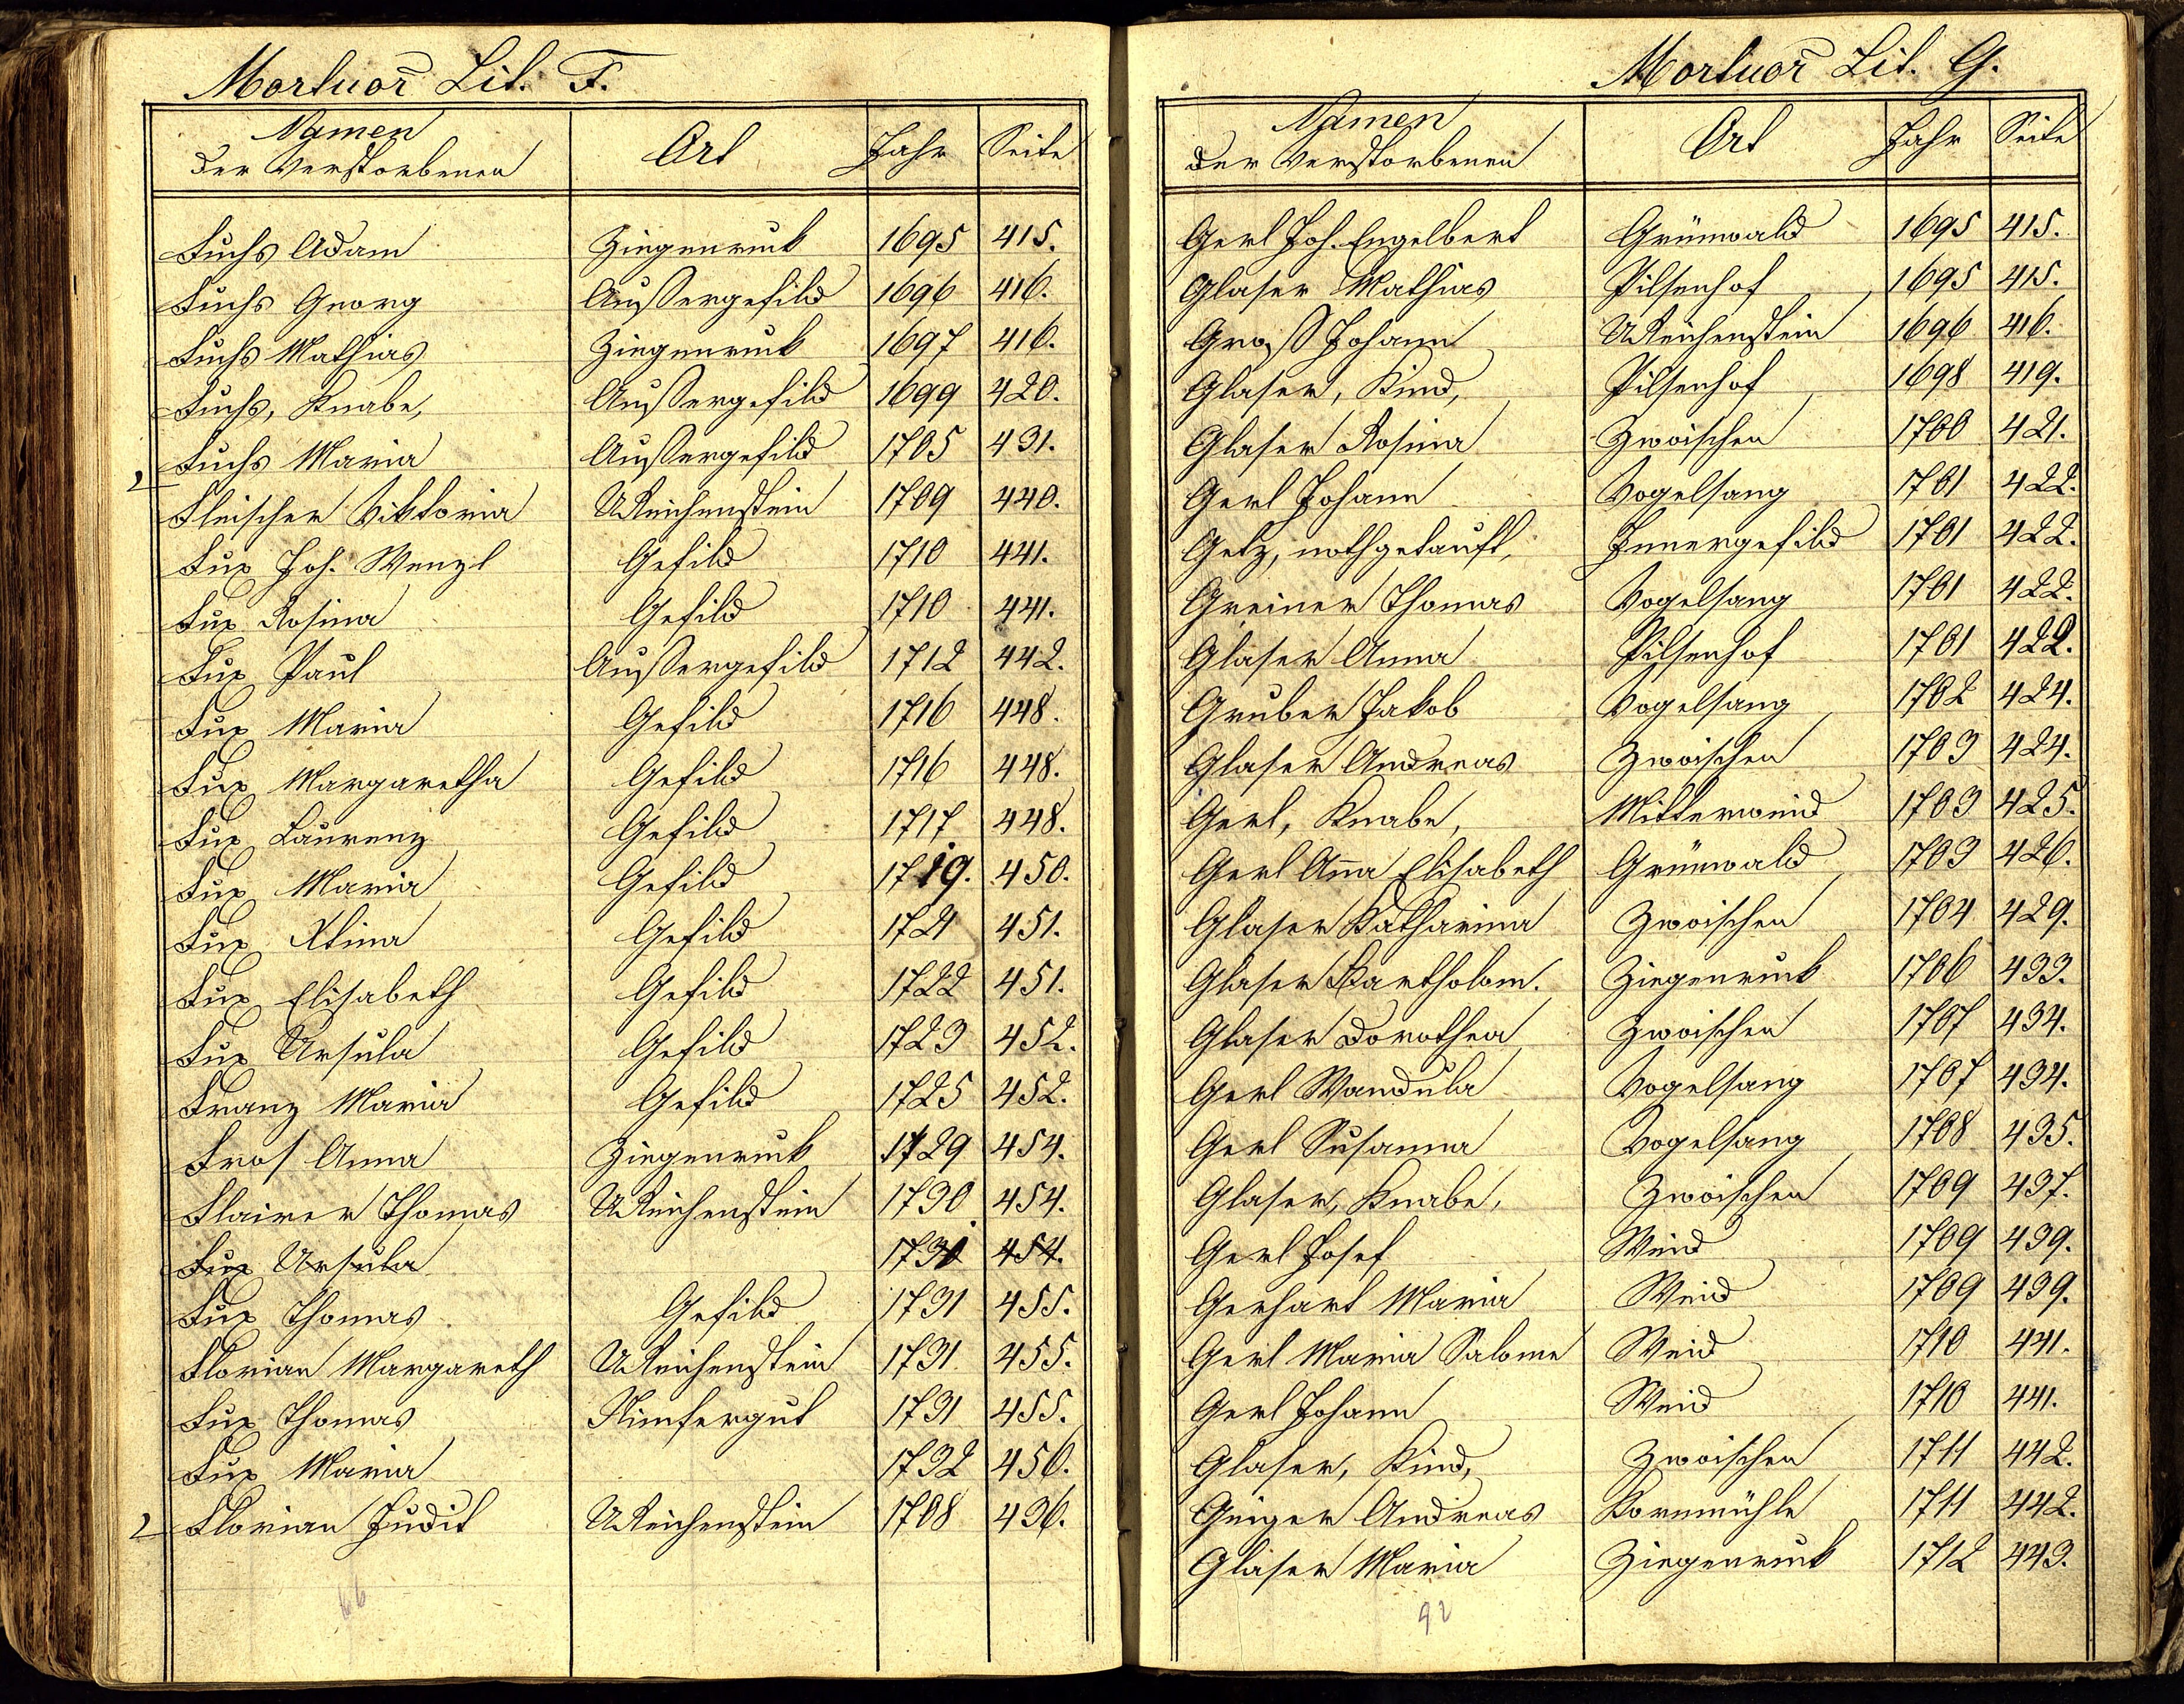 Mortuor̄ Lit. F.
Namen der Verstorbenen Ort Jahr Seite
Fuchs Adam Ziegenruck 1695 415.
Fuchs Georg Außergefild 1696 416.
Fuchs Mathias Ziegenruck 1697 416.
Fuchs, Knabe, Außergefild 1699 420.
Fuchs Maria Außergefild 1705 431.
Fleischer Viktoria UReichenstein 1709 440.
Fux Joh. Wenzl Gefild 1710 441.
Fux Rosina Gefild 1710 441.
Fux Paul Außergefild 1712 442.
Fux Maria Gefild 1716 448.
Fux Margaretha Gefild 1716 448.
Fux Laurenz Gefild 1717 448.
Fux Maria Gefild 1719. 450.
Fux Xtina Gefild 1721 451.
Fux Elisabeth Gefild 1722 451.
Fux Ursula Gefild 1723 452.
Franz Maria Gefild 1725 452.
Fros Anna Ziegenruck 1729 454.
Flairer Thomas UReichenstein 1730 454.
Fux Ursula 1731 454.
Fux Thomas Gefild 1731 455.
Florian Margareth UReichenstein 1731 455.
Fux Thomas 1731 455.
Fux Maria 1732 456.
Florian Judit UReichenstein 1708 436.
66
Mortuor̄ Lit. G.
Namen der Verstorbenen Ort Jahr Seite
Gerl Joh. Engelbert Grünwald 1695 415.
Glaser Mathias Pilsenhof 1695 415.
Groß Johann UReichenstein 1696 416.
Glaser, Kind, Pilsenhof 1698 419.
Glaser Rosina Zwoischen 1700 421.
Gerl Johann Vogelsang 1701 422.
Getz, nothgetauft, Innergefild 1701 422.
Greiner Thomas Vogelsang 1701 422.
Glaser Anna Pilsenhof 1701 422.
Gruber Jakob Vogelsang 1702 424.
Glaser Andreas Zwoischen 1703 424.
Gerl, Knabe, Mitterweid 1703 425.
Gerl Aña Elisabeth Grünwald 1703 426.
Glaser Katharina Zwoischen 1704 429.
Glaser Bartholom. Ziegenruck 1706 433.
Glaser Dorothea Zwoischen 1707 434.
Gerl Wandula Vogelsang 1707 434.
Gerl Susanna Vogelsang 1708 435.
Glaser, Knabe, Zwoischen 1709 437.
Gerl Josef Weid 1709 439.
Gerhart Maria Weid 1709 439.
Gerl Maria Salome Weid 1710 441.
Gerl Johann Weid 1710 441.
Glaser, Kind, Zwoischen 1711 442.
Geiger Andreas Kornmühle 1711 442.
Glaser Maria Ziegenruck 1712 443.